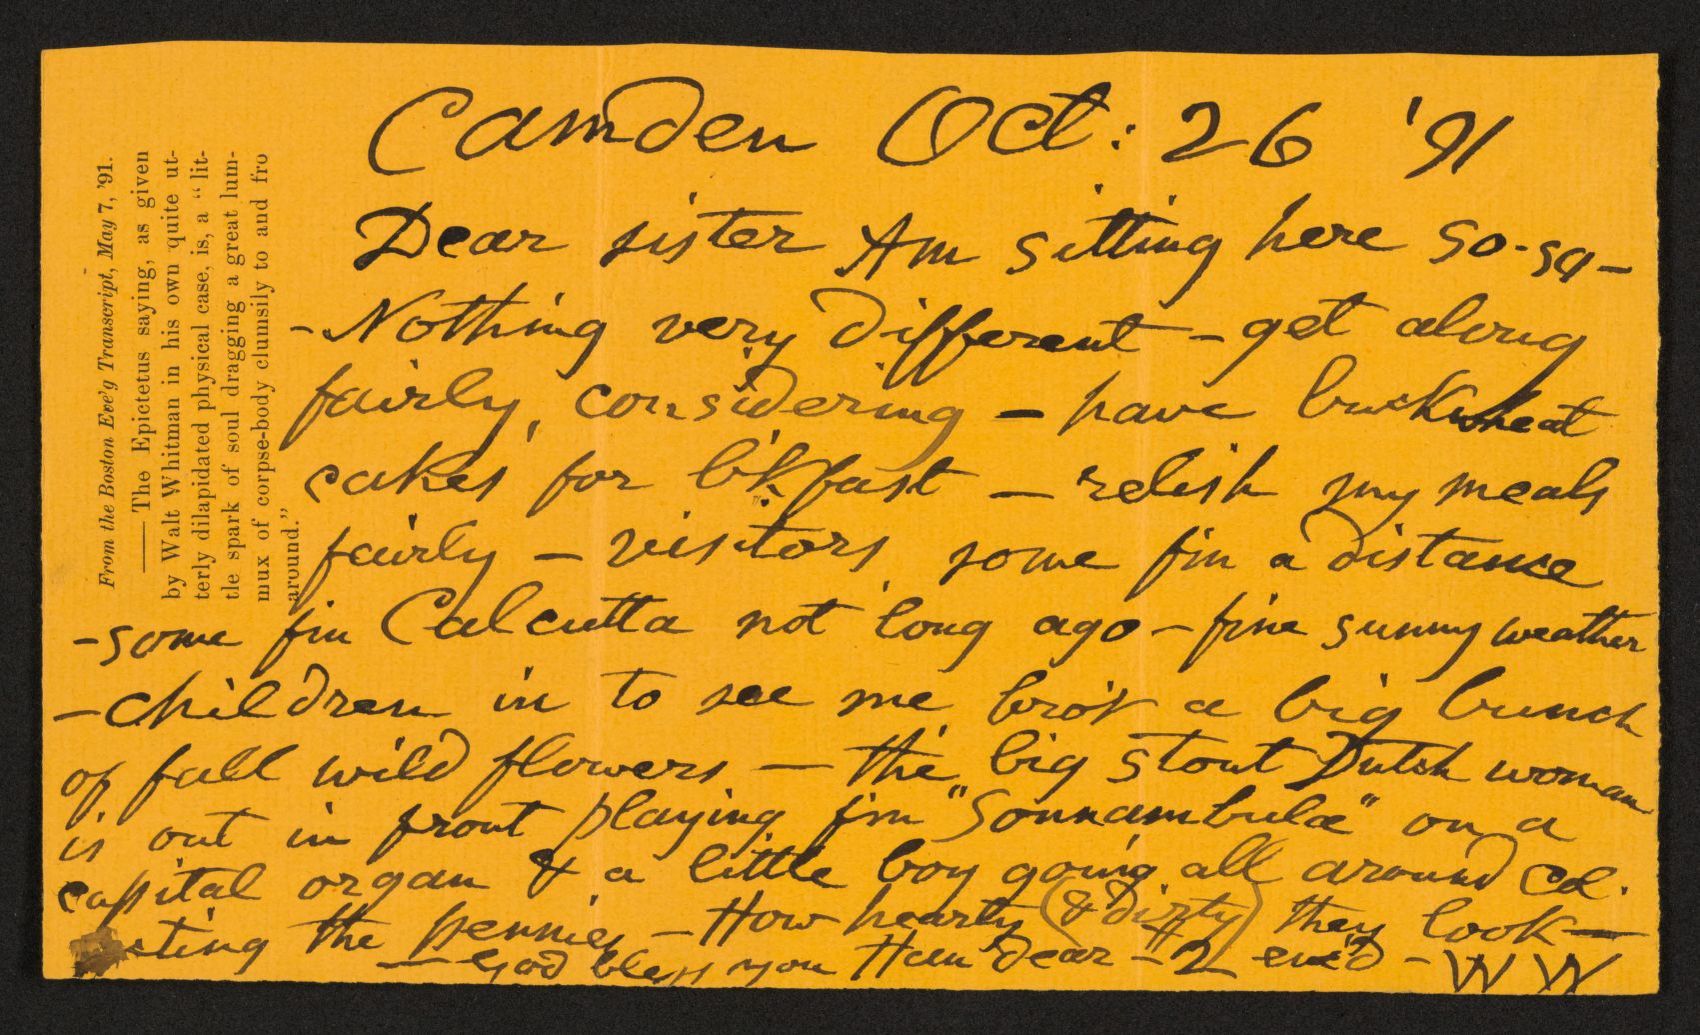 From the Boston Eve'g Transcript, May 7, '91.
—— The Epictetus saying, as given
by Walt Whitman in his own quite ut-
terly dilapidated physical case, is, a "lit-
tle spark of soul dragging a great lum-
mux of corpse-body clumsily to and fro
around."
Camden Oct: 26 '91
Dear sister Am sitting here so-so-
- Nothing very different - get along
fairly, considering - have buckwheat
cakes for b'kfast - relish my meals
fairly - visitors, some f'm a distance
- some f'm Calcutta not long ago - fine sunny weather
- children in to see me, bro't a big bunch
of fall wild flowers - the big stout Dutch woman
is out in front playing f'm "Sonnambula" on a
capital organ & a little boy going all around col-
lecting the pennies - How hearty (& dirty) they look -
- God bless you Han dear - 2 enc'd - W W